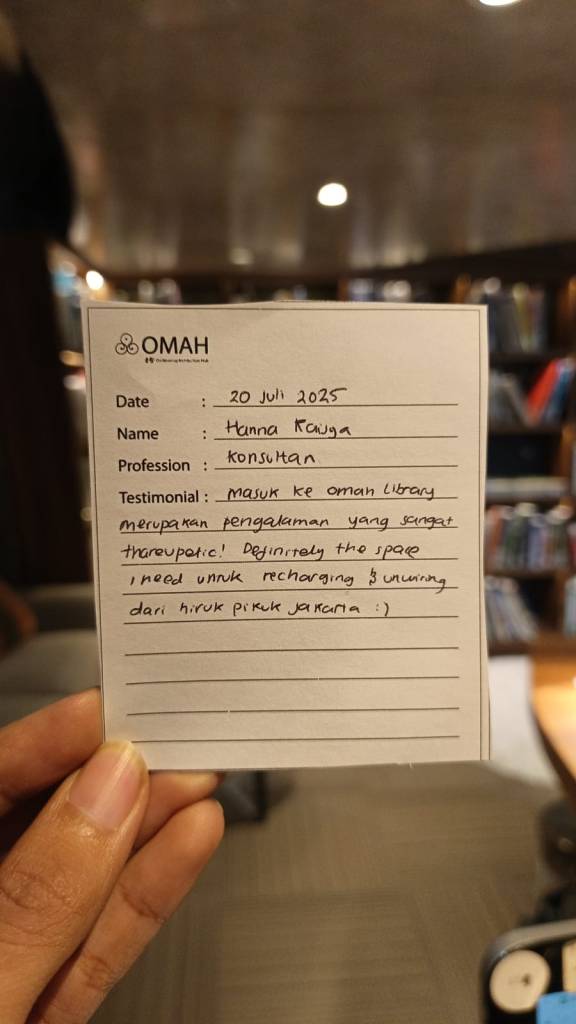 OMAH
Date : 20 Juli 2025
Name : Hanna
Profession : Konsultan
Testimonial : Masuk ke omah library
merupakan pengalaman yang sangat
thareupetic! Definitely the space
i need untuk recharging & unwiring
dari hiruk pikuk Jakarta :)